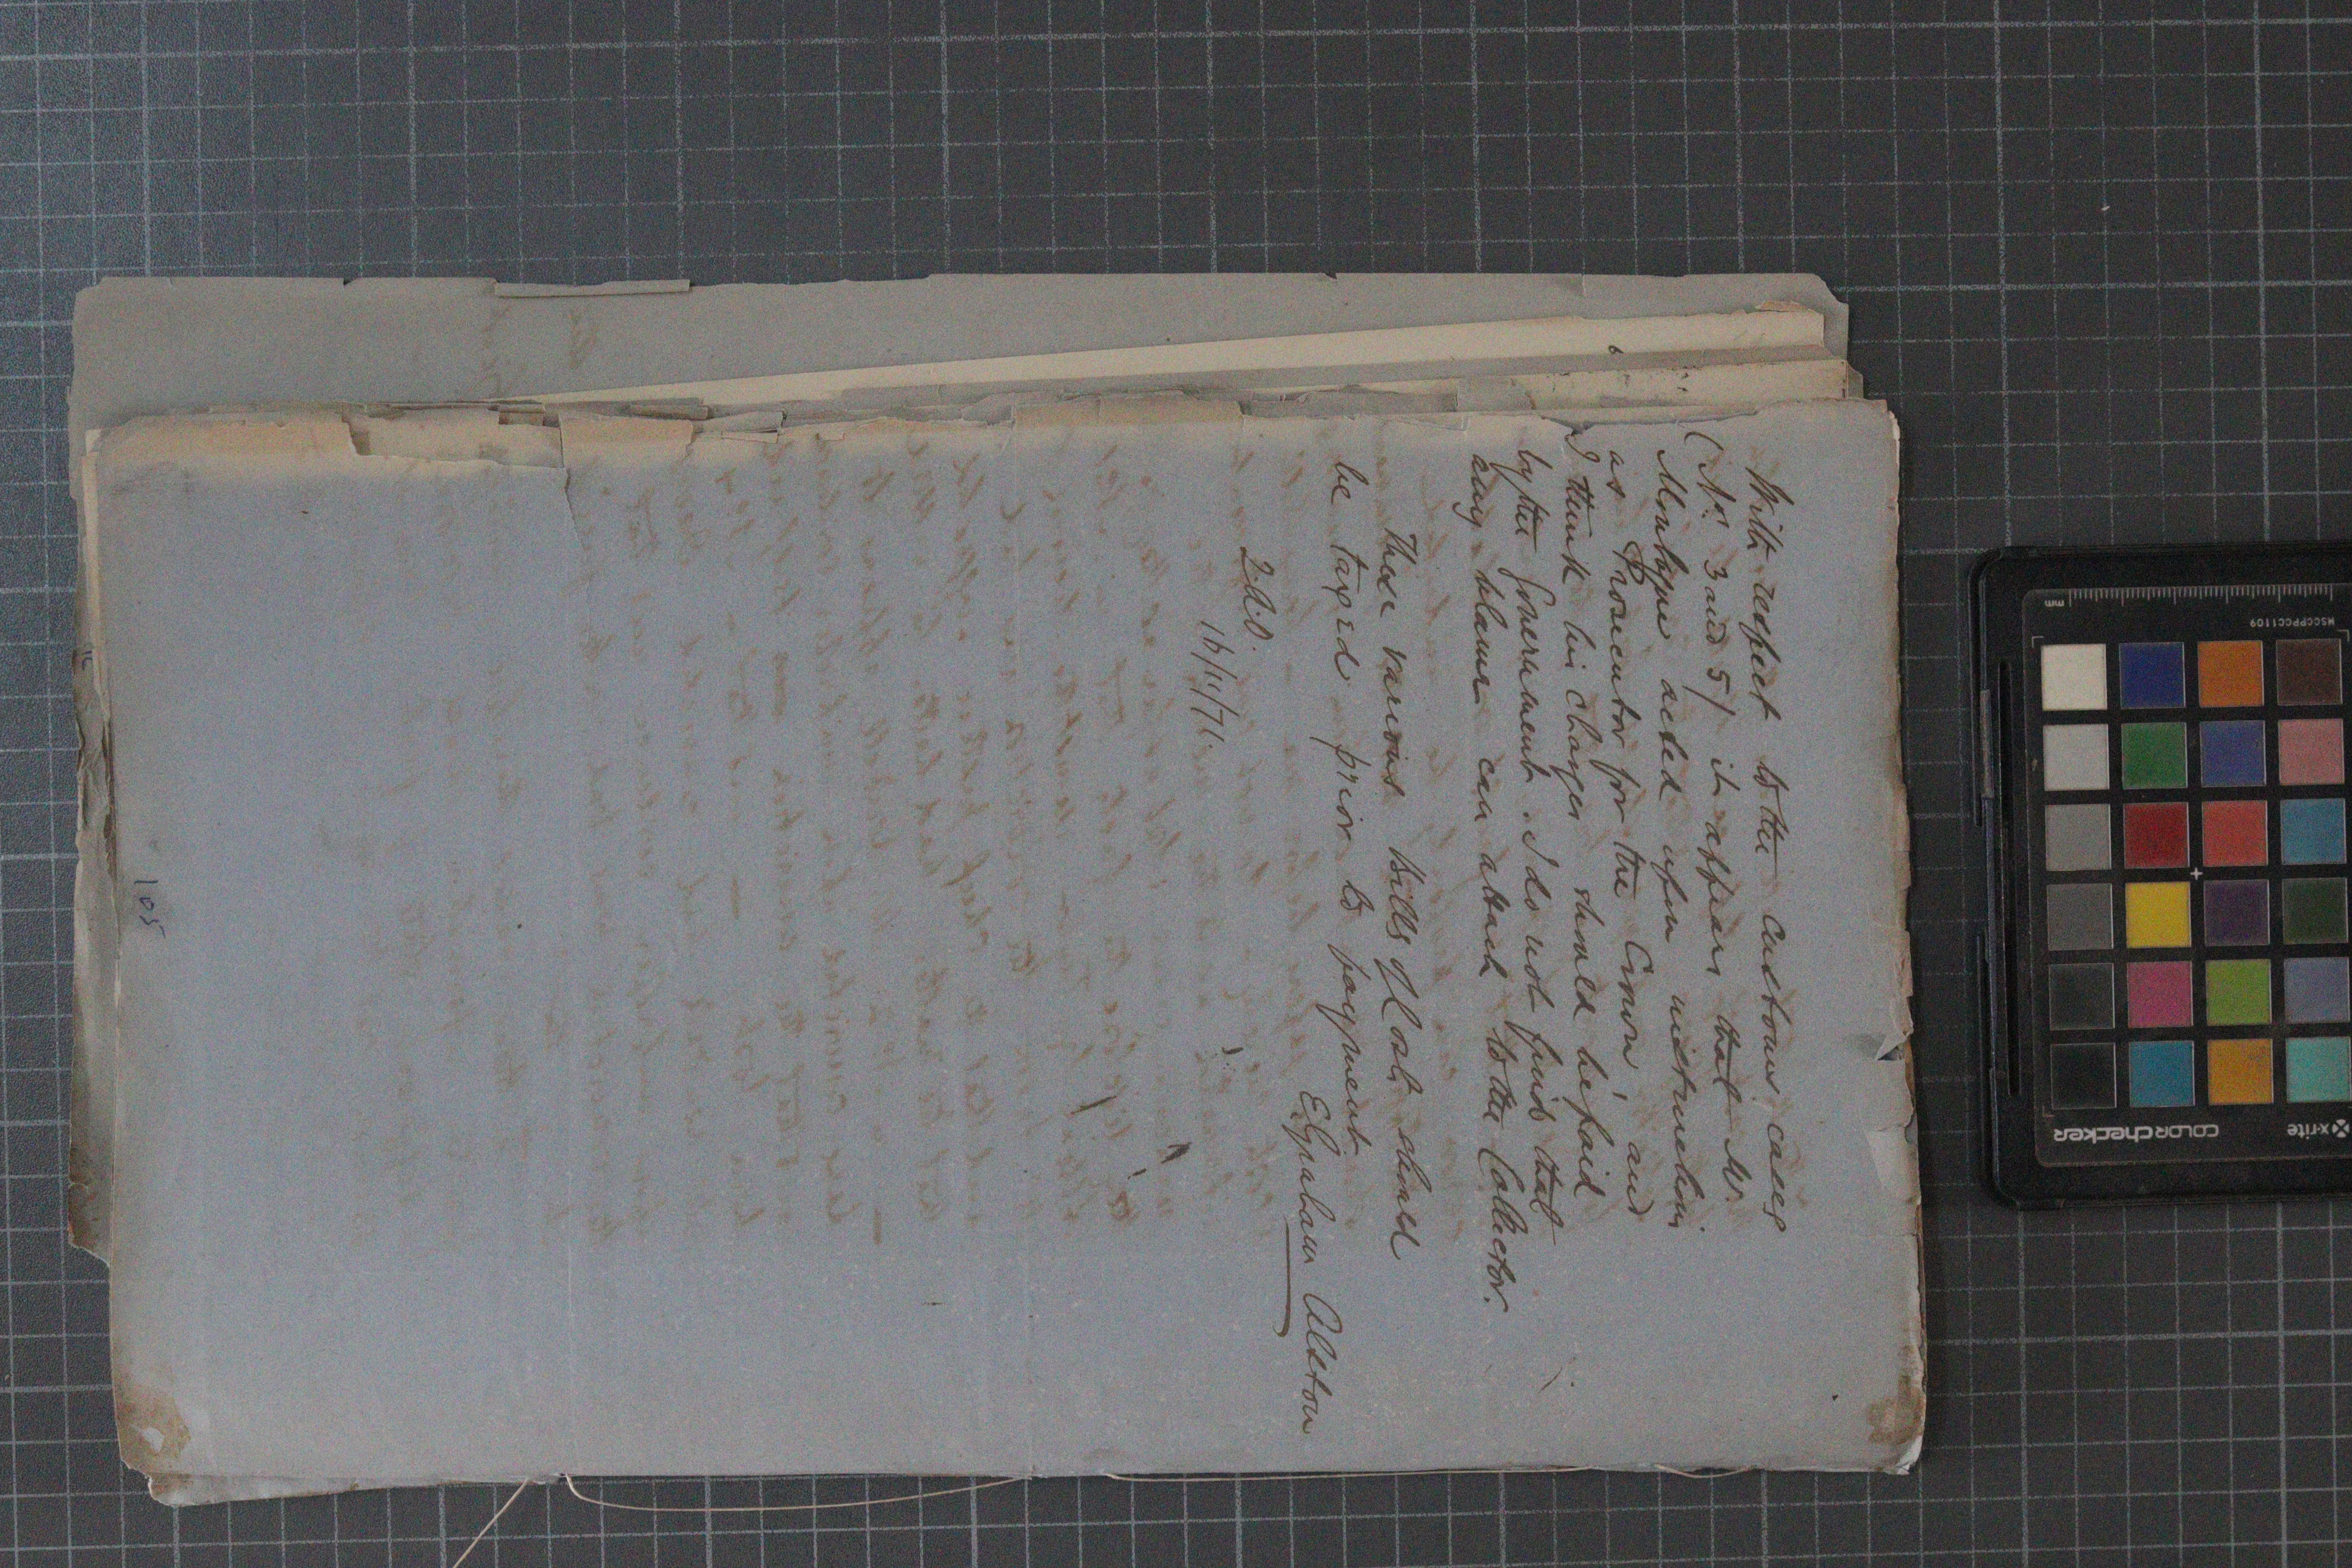 With respect to the Customs cases
(Nos. 3 and 5) it appears that Mr
acted upon instructions
as Prosecutor for the Crown, and
I think his charges should be paid
by the Government. I do not find that
any blame can attach to the Collector.
These various bills of Cost should
be taxed prior to payment
E Graham Alston
16/11/71.
105
mm
MSCCPPCC1109
x-rite
COLORchecker